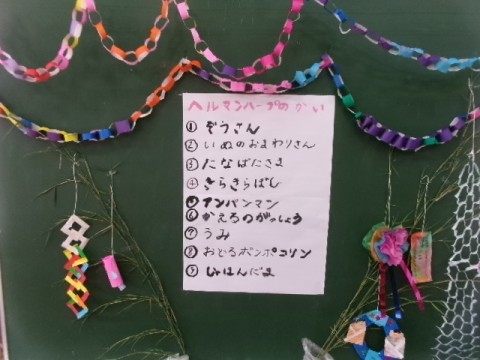 ヘルマンハープのかい
① ぞうさん
② いぬのおまわりさん
③ たなばたさま
④ きらきらぼし
⑤ アンパンマン
⑥ かえるのがっしょう
⑦ うみ
⑧ おどるポンポコリン
⑨ しゃぼんだま